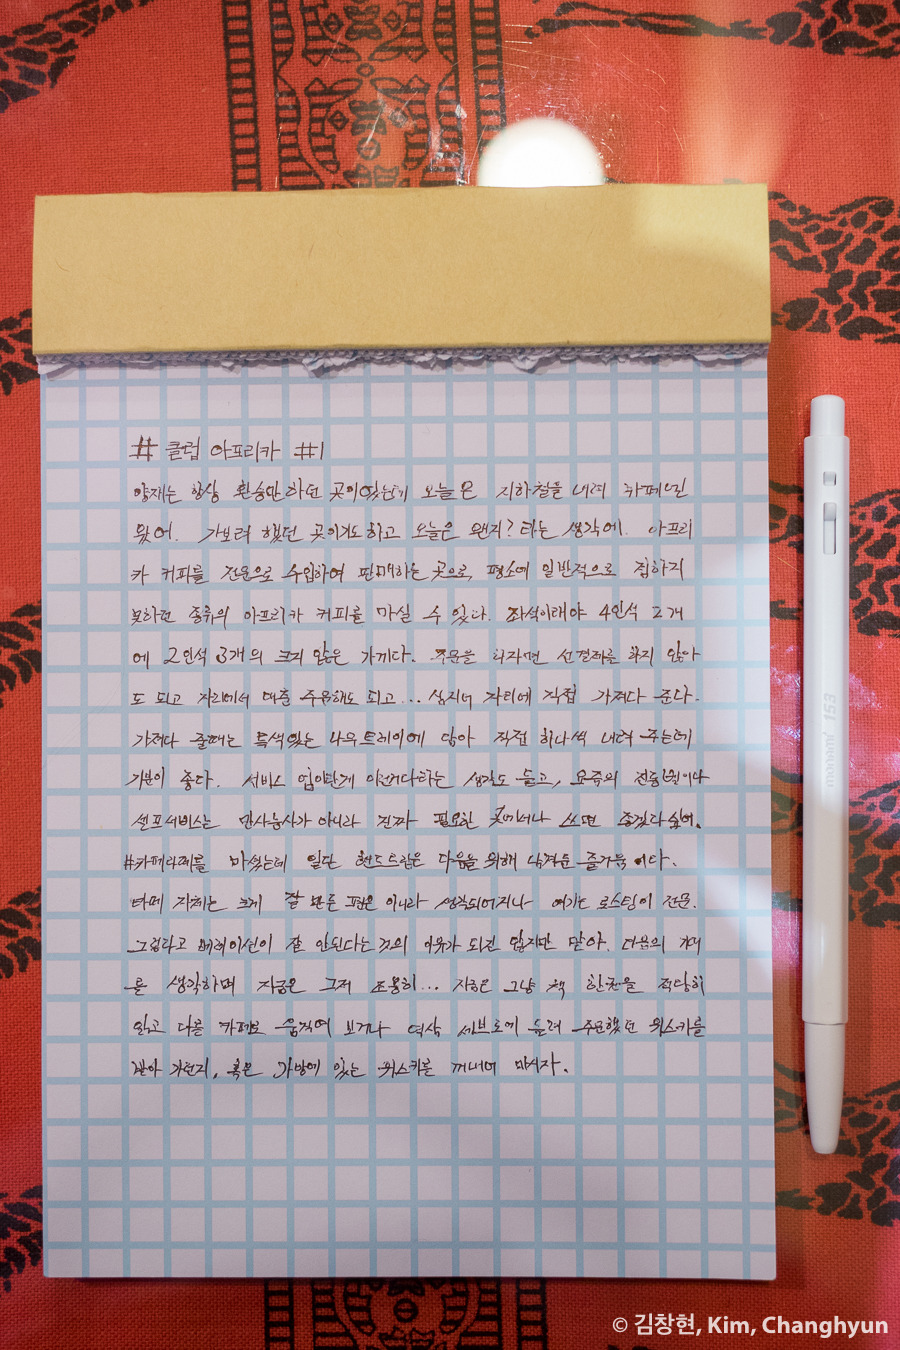 # 클럽 아프리카 #1
양재는 항상 환승만 하던 곳이었는데 오늘은 지하철을 내려 카페에
왔어. 가보려 했던 곳이기도하고 오늘은 왠지? 라는 생각에. 아프리
카 커피를 전문으로 수입하여 판매하는 곳으로, 평소에 일반적으로 접하지
못하던 종류의 아프리카 커피를 마실 수 있다. 좌석이래야 4인석 2개
에 2인석 3개의 크지 않은 가게다. 주문을 하자면 선결제를 하지 않아
도 되고 자리에서 대충 주문해도 되고... 심지어 자리에 직접 가져다 준다.
가져다 줄때는 특색있는 나무트레이에 담아 직접 하나씩 내려 주는데
기분이 좋다. 서비스 업이란게 이런거다하는 생각도 들고, 요즘의 진동벨이나
셀프서비스는 만사능사가 아니라 진짜 필요한 곳에서나 쓰면 좋겠다 싶어.
#카페라떼를 마셨는데 일단 핸드드립은 다음을 위해 남겨둔 즐거움이다.
라떼 자체는 크게 잘 만든 편은 아니라 생각되어지나 여기는 로스팅이 전문.
그렇다고 베리에이션이 잘 안된다는 것의 이유가 되진 않지만 말야. 다음의 커피
를 생각하며 지금은 그저 조용히... 자하은 그냥 책 한권을 적당히
읽고 다른 카페로 움직여 보거나 역삼 세브도에 들려 주문했던 위스키를
받아 가던지, 혹은 가방에 있는 위스키를 꺼내어 마시자.
monami 153
© 김창현, Kim, Changhyun